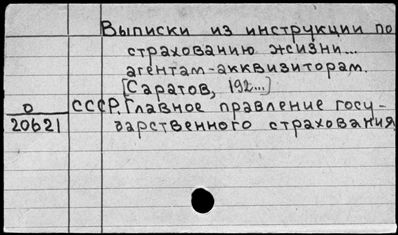 Выписки из инструкции по
страхованию жизни...
агентам-акквизиторам.
[Саратов, 192...]
О
20621
СССР. Главное правление госу-
дарственного страхования